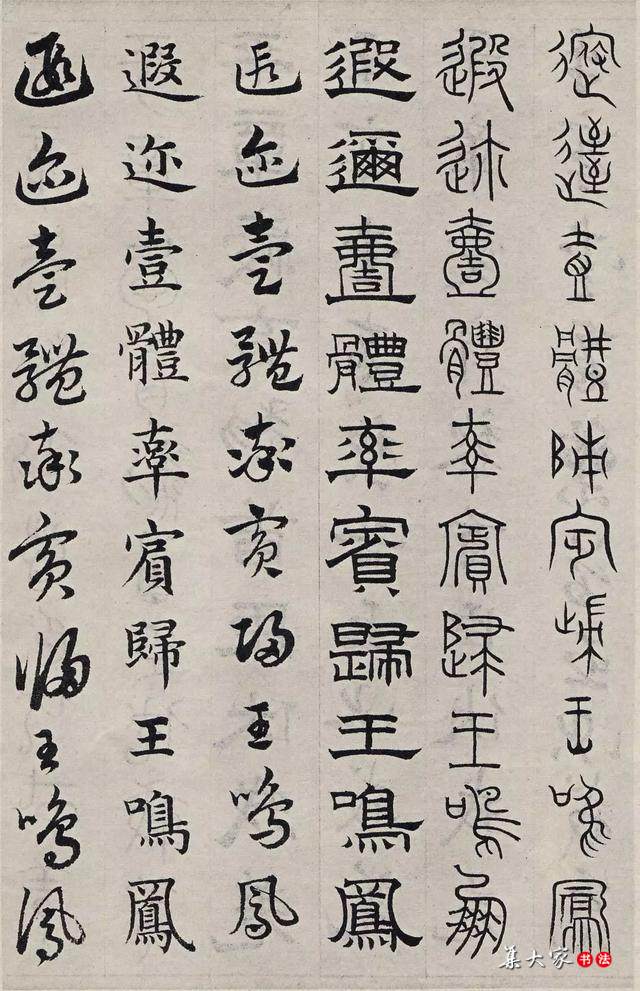 遐邇壹體率賓歸王鳴鳳
遐迩壹體率賓歸王鳴鳳
遐邇壹體率賓歸王鳴鳳
遐迩壹體率賓歸王鳴鳳
遐迩壹體率賓歸王鳴鳳
遐迩壹體率賓歸王鳴鳳
集大家书法